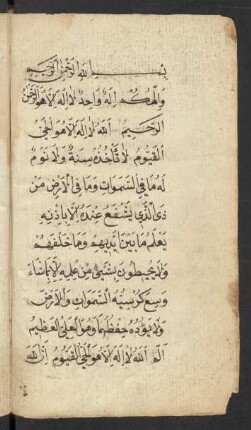 بسم الله الرحمن الرحيم
والهكم اله واحد لا اله الا هو الرحمن
الرحيم الله لا اله الا هو الحي
القيوم لا تأخذه سنة ولا نوم
له ما في السموات وما في الارض من
ذا الذي يشفع عنده الا باذنه
يعلم ما بين ايديهم وما خلفهم
ولا يحيطون بشيئ من علمه الا بما شاء
وسع كرسيه السموات والارض
ولا يؤده حفظهما وهو العلي العظيم
الم الله لا اله الا هو الحي القيوم ان الله